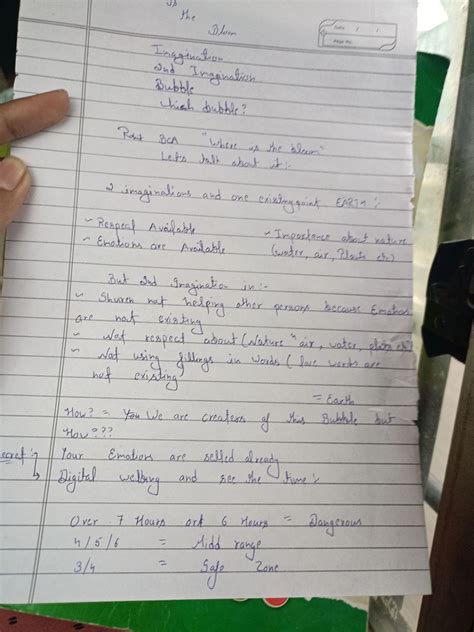 the
Bloom
Imagination
2nd Imagination
Bubble
which bubble?
Date / /
Page No.
Part BCA "Where is the bloom"
Let's talk about it:-
2 imaginations and one existing point, EARTH:-
~ Respeal Available
~ Importance about nature
~ Emotions are Available
(water, air, Plants etc)
But 2nd Imagination in:-
not helping other persons because Emotions
are not existing
~ Not respect about (Nature "air, water, plants etc")
~ Not using fillings in words (love words are
not existing)
= Earth
How? = You We are creaters of this Bubble but
How???
secret:-
Your Emotions are selled already
Digital and see the time:-
Over 7 Hours or 6 Hours = Dangerous
4/5/6 = Midd range
3/4 = Safe Zone